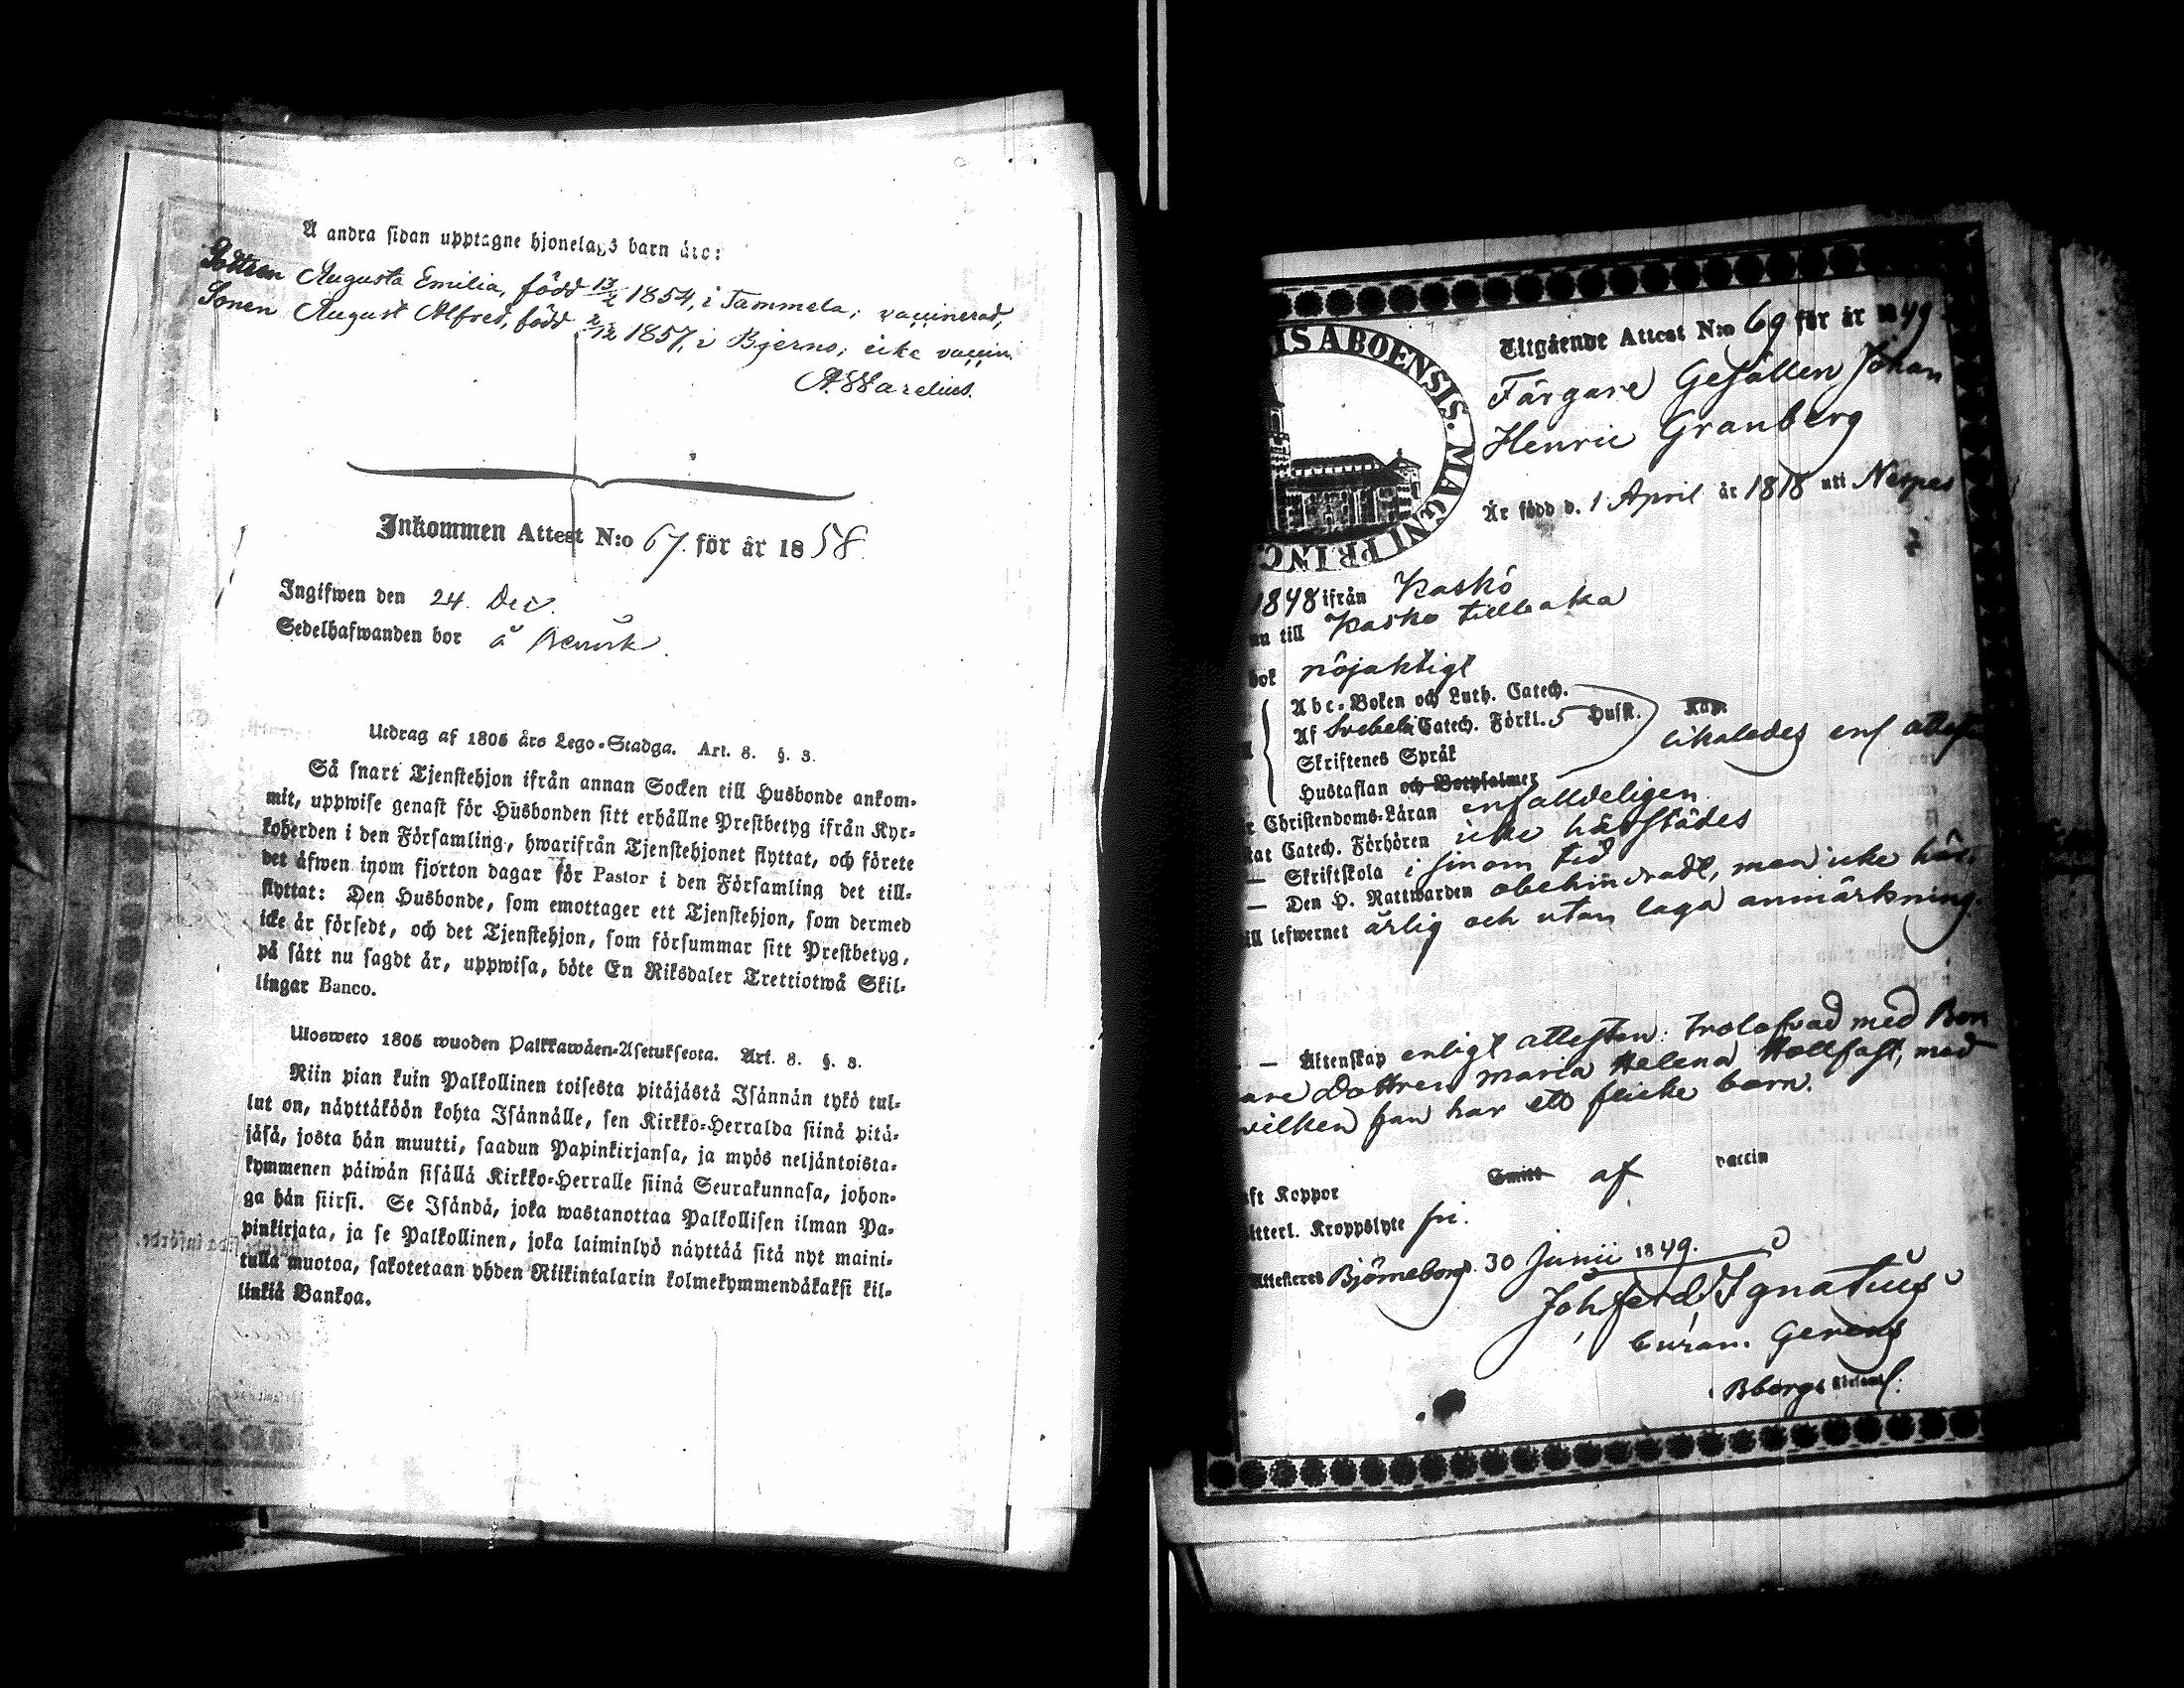 Å andra sidan upptagne hjonelags barn äro:
Dottren Augusta Emilia, född 13/2 1854, i Tammela; vaccinerad,
Sonen August Alfred, född 2/12 1857, i Bjerno; icke vaccin.
A. Warelius.
Inkommen Attest N:o 67. för år 1858.
Ingifwen den 24. Dec.
Sedelhafwanden bor å
Utdrag af 1805 års Lego-Stadga. Art. 8. §. 3.
Så snart Tjenstehjon ifrån annan Socken till Husbonde ankom-
mit, uppwise genast för Husbonden sitt erhållne Prestbetyg ifrån Kyr-
koherden i den Församling, hwarifrån Tjenstehjonet flyttat, och förete
det äfwen inom fjorton dagar för Pastor i den Församling det till-
flyttat: Den Husbonde, som emottager ett Tjenstehjon, som dermed
icke är försedt, och det Tjenstehjon, som försummar sitt Prestbetyg,
på sätt nu sagdt är, uppwisa, böte En Riksdaler Trettiotwå Skil-
lingar Banco.
Ulosweto 1805 wuoden Palkkawäen-Asetuksesta. Art. 8. §. 3.
Niin pian kuin Palkollinen toisesta pitäjästä Isännän tykö tul-
lut on, näyttäköön kohta Isännälle, sen Kirkko-Herralda siinä pitä-
jäsä, josta hän muutti, saadun Papinkirjansa, ja myös neljäntoista-
kymmenen päiwän sisällä Kirkko-Herralle siinä Seurakunnasa, johon-
ga hän siirsi. Se Isändä, joka wastanottaa Palkollisen ilman Pa-
pinkirjata, ja se Palkollinen, joka laiminlyö näyttää sitä nyt maini-
tulla muotoa, sakotetaan yhden Riikintalarin kolmekymmendäkaksi kil-
linkiä Bankoa.
IS ABOENSIS. MAGNI PRINC
Utgående Attest N:o 69 för år 1849
Färgare Gesällen Johan
Henric Granberg
Är född d. 1 April år 1818 uti Nerpes
1848 ifrån Kaskö
till Kasko tillbaka
bok nöjaktigt
Abc-Boken och Luth. Catech.
Af Svebeli Catech. Förkl. 5 Husk. Kap.
likaledes enl attesten
Skriftenes Språk
Hustaflan och Botpsalmer
Christendoms-Läran enfalldeligen
Catech. Förhören icke härstädes
— Skriftskola i sinom tid
— Den H. Nattwarden obehindradt, men icke här.
till lefwernet ärlig och utan laga anmärkning.
— Äktenskap enligt attesten: trolofvad med Bon
are Dottren Maria Helena Hollfast, med
hvilken han har ett flicke barn.
haft Koppor Smitt af vaccin
ytterl. Kroppslyte fri.
Attesteres Björneborg. 30 Junii 1849.
Joh. Ferd. Ignatius
Curam. Gerens
Bborgs